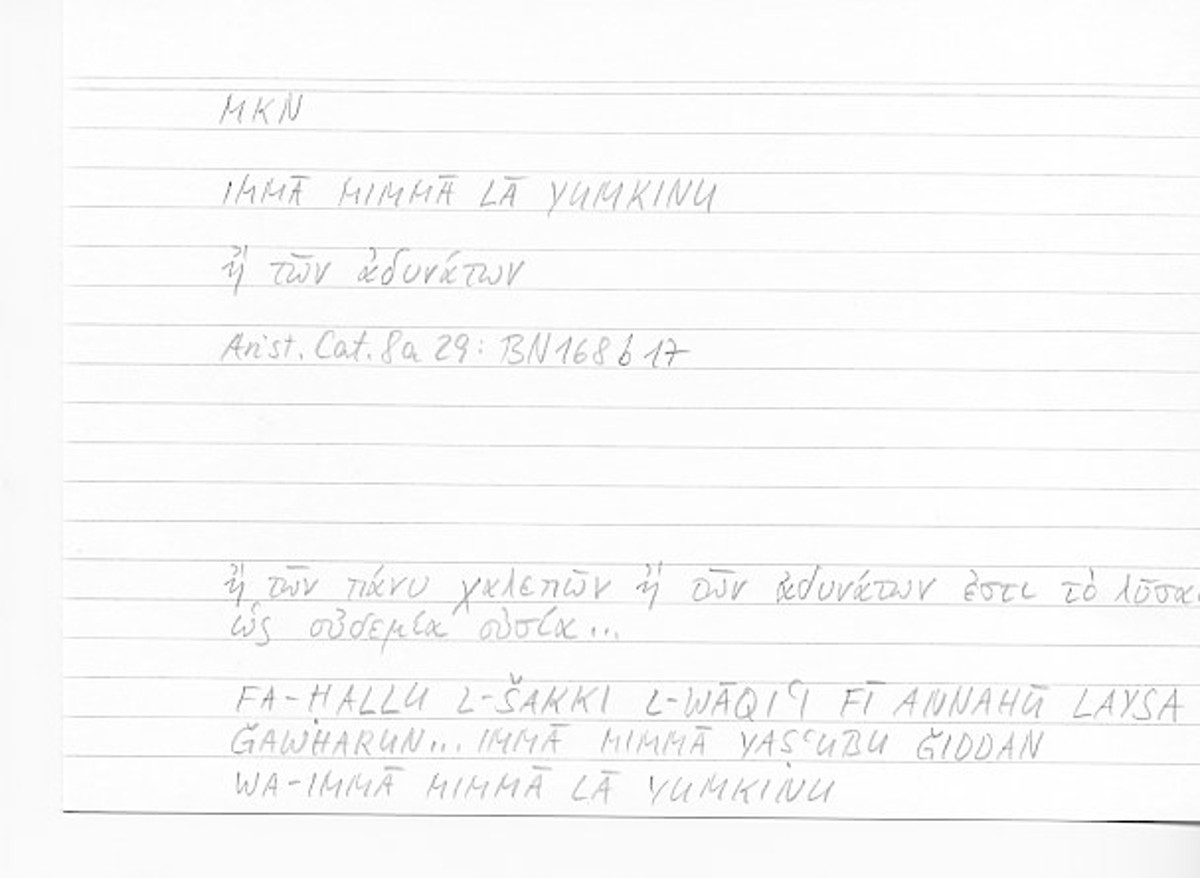 MKN
IMMĀ MIMMĀ LĀ YUMKINU
ἢ τῶν ἀδυνάτων
Arist. Cat. 8a 29: BN 168 b 17
ἢ τῶν πάνυ χαλεπῶν ἢ τῶν ἀδυνάτων ἐστι τὸ λῦσαι
ὡς οὐδεμία οὐσία...
FA-ḤALLU L-ŠAKKI L-WĀQIʿI FĪ ANNAHŪ LAYSA
ǦAWHARUN... IMMĀ MIMMĀ YAṢʿUBU ǦIDDAN
WA-IMMĀ MIMMĀ LĀ YUMKINU